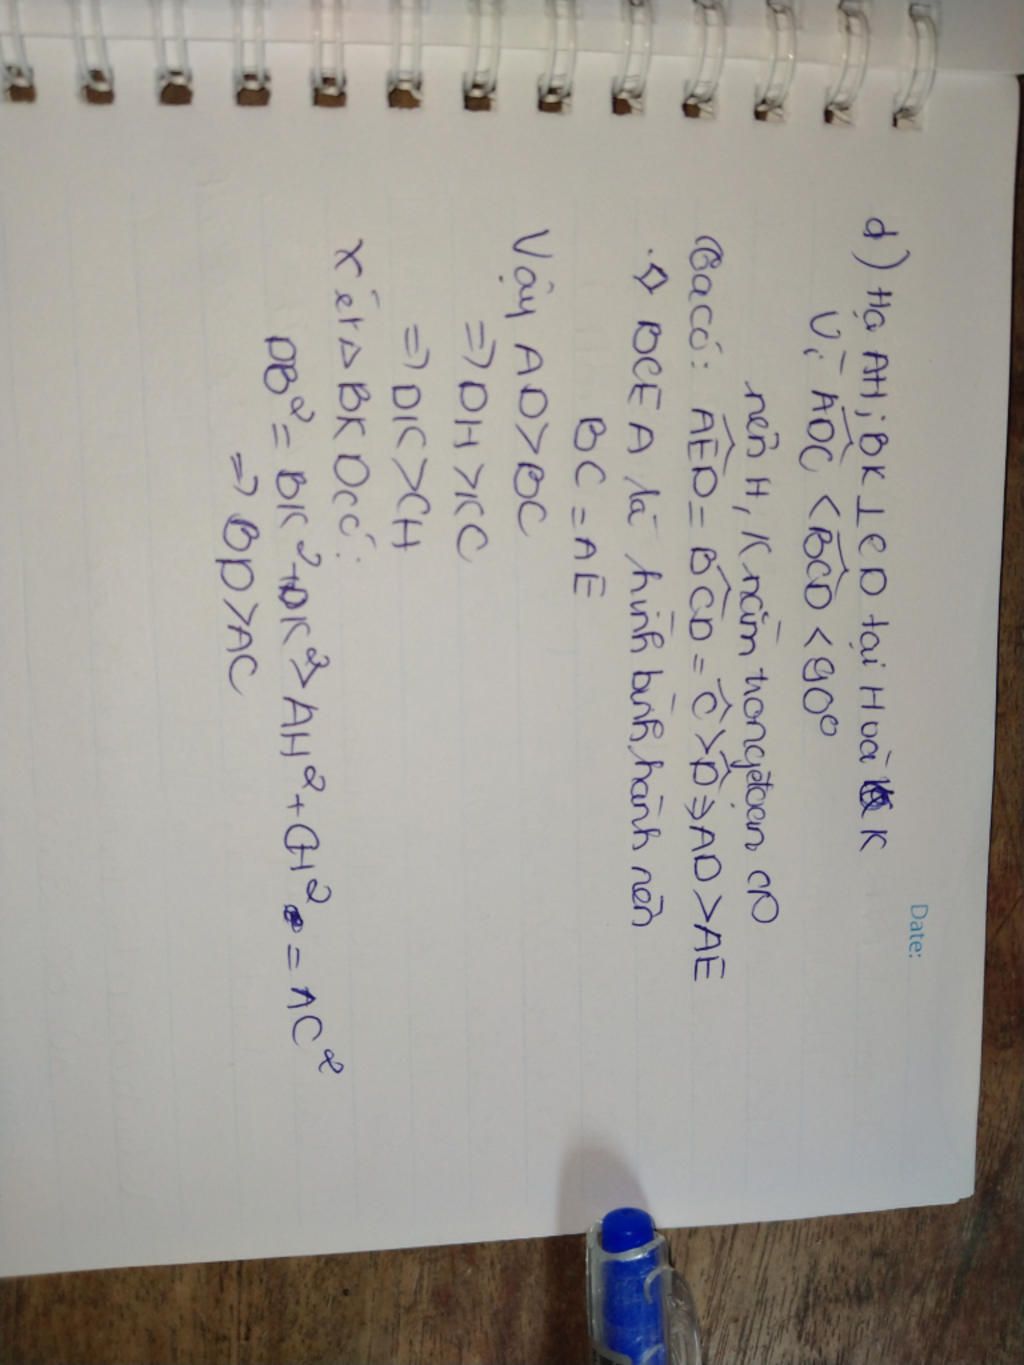 Date:
d) Hạ AH; BK ⊥ CD tại H và K
Vì ADC < BCD < 90°
nên H, K nằm trong đoạn CD
Ta có: AED = BCD = C > D => AD > AE
◇ BCEA là hình bình hành nên
BC = AE
Vậy AD > BC
=> DH > KC
=> DK > CH
Xét △ BKD có:
DB² = BK² + DK² > AH² + CH² = AC²
=> BD > AC